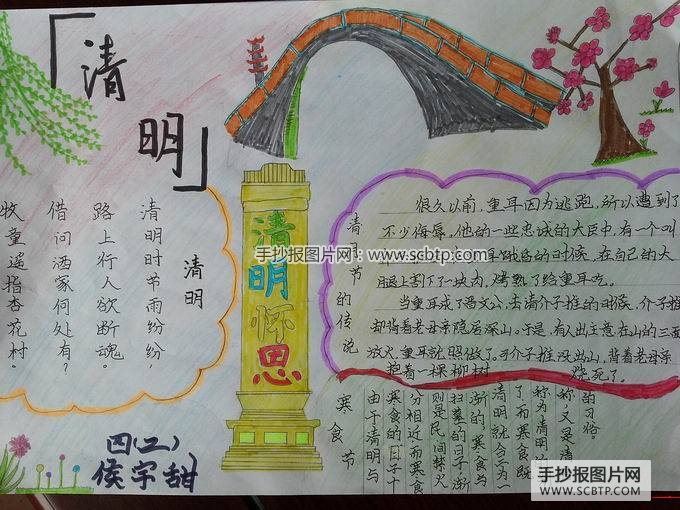 「清
明」
清明
清明时节雨纷纷,
路上行人欲断魂。
借问酒家何处有?
牧童遥指杏花村。
四(二)
侯宇甜
清明怀思
清明节的传说
很久以前,重耳因为逃跑,所以遭到了
不少侮辱。他的一些忠诚的大臣中,有一个叫
的时候,在自己的大
腿上割下了一块肉,烤熟了给重耳吃。
当重耳成了晋文公,去请介子推的时候,介子推
却背着老母亲隐居深山。于是,有人出主意在山的三面
放火,重耳就照做了。介子推没出山,背着老母亲
抱着一棵柳树 烧死了。
寒食节
由于清明与
寒食的日子十
分相近,而寒食
则是民间禁火
扫墓的日子,渐
渐的寒食与
清明就合二为一
了,而寒食既
称为清明的
称,又是清
的习俗。
手抄报图片网
www.scbtp.com
手抄报图片网
WWW.SCBTP.COM